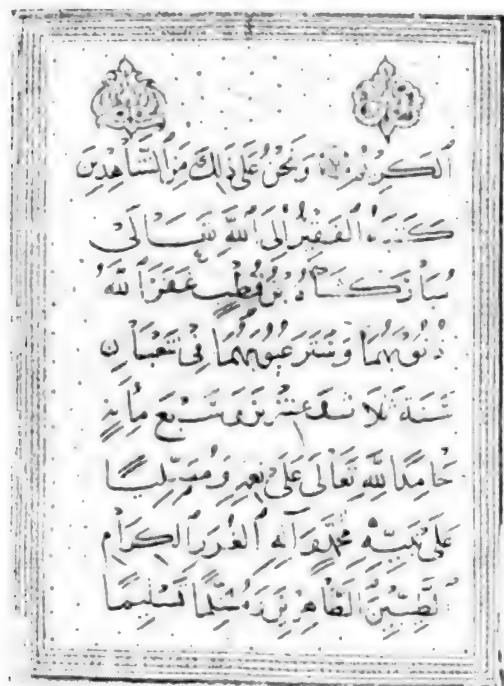 ٱلكريم ونحن على ذلك من الشاهدين
كتبه الفقير إلى الله تعالى
مباركشاه بن قطب غفر الله
ذنوبهما وستر عيوبهما في شعبان
سنة ثلاث وعشرين وسبع مائة
حامدا لله تعالى على نعمه ومصليا
على نبيه محمد وآله الغرر الكرام
الطيبين الطاهرين ومسلما تسليما